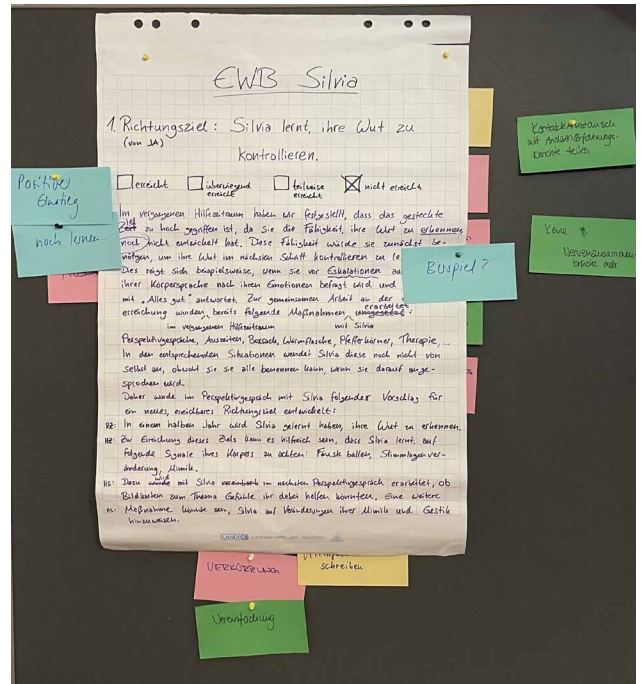 EWB Silvia
1. Richtungsziel: Silvia lernt, ihre Wut zu
(von JA)
kontrollieren.
erreicht
überwiegend erreicht
teilweise erreicht
nicht erreicht
Im vergangenen Hilfezeitraum haben wir festgestellt, dass das gesteckte
Ziel
zu hoch gegriffen ist, da Sie die Fähigkeit, ihre Wut zu erkennen,
noch nicht entwickelt hat. Diese Fähigkeit würde sie zunächst be-
nötigen, um ihre Wut im nächsten Schritt kontrollieren zu le
Dies zeigt sich beispielsweise, wenn sie vor Eskalationen au
ihrer Körpersprache nach ihren Emotionen befragt wird und
mit "Alles gut" antwortet. Zur gemeinsamen Arbeit an der
erarbeitet
erreichung wurden bereits folgende Maßnahmen umgesetzt:
im vergangenen Hilfezeitraum
mit Silvia
Perspektivgespräche, Auszeiten, Boxsack, Wärmflasche, Pfefferkörner, Therapie, ...
In den entsprechenden Situationen wendet Silvia diese noch nicht von
selbst an, obwohl sie sie alle benennen kann, wenn sie darauf ange-
sprochen wird.
Daher wurde im Perspektivgespräch mit Silvia folgender Vorschlag für
ein neues, erreichbares Richtungsziel entwickelt:
RZ: In einem halben Jahr wird Silvia gelernt haben, ihre Wut zu erkennen.
HZ: Zur Erreichung dieses Ziels kann es hilfreich sein, dass Silvia lernt, auf
folgende Signale ihres Körpers zu achten: Faust ballen, Stimmlagenver-
änderung, Mimik.
wird
HS: Dazu wurde mit Silvia vereinbart im nächsten Perspektivgespräch erarbeitet, ob
Bildkarten zum Thema Gefühle ihr dabei helfen könnten. Eine weitere
HS: Maßnahme könnte sein, Silvia auf Veränderungen ihrer Mimik und Gestik
hinzuweisen.
Positiver
Einstieg
noch lernen...
Beispiel?
mit Anderen/Erfahrungs-
berichte teilen
Keine
Nervenzusammen-
brüche mehr
VERKÜRZUNG
schreiben
Vereinfachung